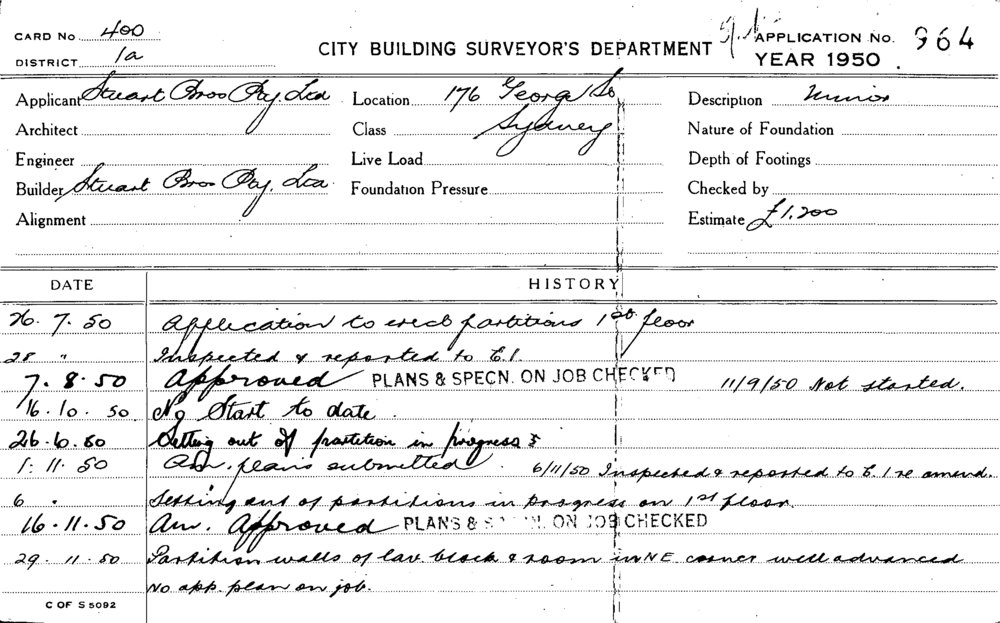 CARD No 400
DISTRICT 1a
CITY BUILDING SURVEYOR'S DEPARTMENT
APPLICATION No. 964
YEAR 1950
Applicant Stuart Bros Pty, Ltd Location 176 George St Description Minor
Architect Class Sydney Nature of Foundation
Engineer Live Load Depth of Footings
Builder Stuart Bros Pty, Ltd Foundation Pressure Checked by
Alignment Estimate £1,200
DATE HISTORY
26. 7. 50 Application to erect partitions 1st floor
28 " Inspected & reported to E.I.
7. 8. 50 Approved PLANS & SPECN. ON JOB CHECKED 11/9/50 Not started.
16. 10. 50 No Start to date.
26. 10. 50 Setting out of partition in progress
1. 11. 50 Am. plans submitted. 6/11/50 Inspected & reported to E.I re amend.
6 " Setting out of partitions in progress on 1st floor.
16. 11. 50 Am. Approved PLANS & SPECN. ON JOB CHECKED
29. 11. 50 Partition walls of lav. block & room in NE corner well advanced
No app. plan on job.
C OF S 5092